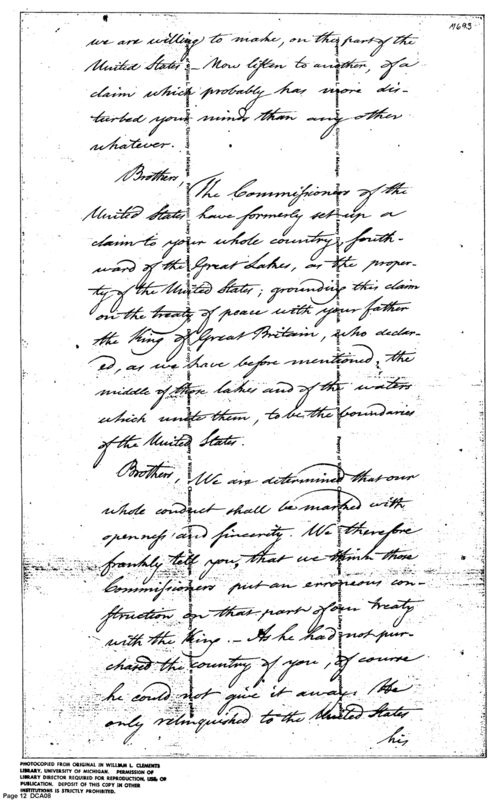 M693
we are willing to make, on the part of the
United States – Now listen to another, of a
claim which probably has more dis-
turbed your minds than any other
whatever.
Brothers,
The Commissioners of the
United States have formerly set up a
claim to your whole country, south-
ward of the Great Lakes, as the proper-
ty of the United States; grounding this claim
on the treaty of peace with your father
the King of Great Britain, who declar-
ed, as we have before mentioned, the
middle of those lakes and of the waters
which unite them, to be the boundaries
of the United States.
Brothers, We are determined that our
whole conduct shall be marked with
openness and sincerity. We therefore
frankly tell you, that we think those
Commissioners put an erroneous con-
struction on that part of our treaty
with the King. – As he had not pur-
chased the country of you, of course
he could not give it away. He
only relinquished to the United States
his
PHOTOCOPIED FROM ORIGINAL IN WILLIAM L. CLEMENTS
LIBRARY, UNIVERSITY OF MICHIGAN. PERMISSION OF
LIBRARY DIRECTOR REQUIRED FOR REPRODUCTION, USE, OR
PUBLICATION. DEPOSIT OF THIS COPY IN OTHER
INSTITUTIONS IS STRICTLY PROHIBITED.
Page 12 DCA08